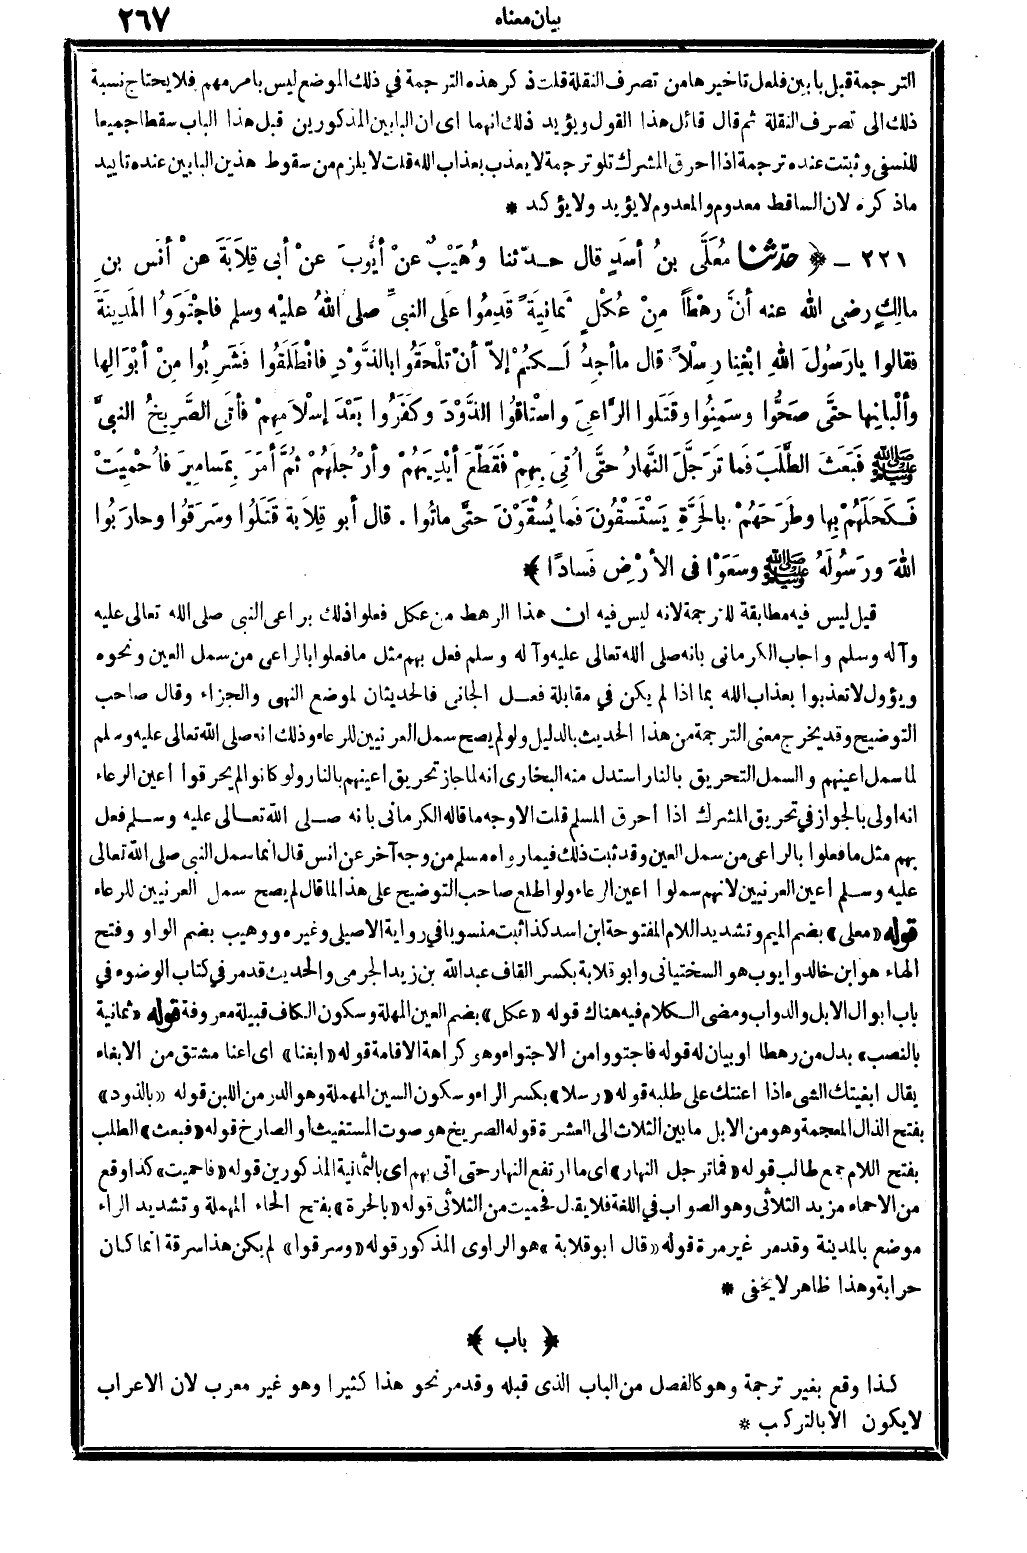 بيان معناه ٢٦٧
الترجمة قبل بابين فلعل تاخيرها من تصرف النقلة قلت ذكر هذه الترجمة في ذلك الموضع ليس بامر مهم فلا يحتاج نسبة
ذلك الى تصرف النقلة ثم قال قائل هذا القول ويؤيد ذلك انهما اى ان البابين المذكورين قبل هذا الباب سقطا جميعا
للنسفى وثبتت عنده ترجمة اذا احرق المشرك تلو ترجمة لا يعذب بعذاب الله قلت لا يلزم من سقوط هذين البابين عنده تاييد
ماذكره لان الساقط معدوم والمعدوم لا يؤيد ولا يؤكد *
٢٢١ ـ ﴿ حَدَّثَنَا مُعَلَّى بنُ أسَدٍ قال حدّثنا وُهَيْبٌ عنْ أيُّوبَ عنْ أبى قِلَابَةَ عنْ أنَسِ بنِ
مالِكٍ رضى الله عنه أنَّ رهْطاً مِنْ عُكْلٍ ثَمانِيَةً قَدِمُوا عَلَى النبىِّ صلى اللهُ عليْه وسلم فاجْتَوَوُا المَدِينَةَ
فقالوا يارَسُولَ اللهِ ابْغِنا رِسْلاً قال ماأجِدُ لَكمُ إلاَّ أنْ تَلْحَقُوا بالذَّوْدِ فانْطَلَقُوا فَشَرِبُوا مِنْ أبْوَالِها
وألْبانِها حتَّى صَحُّوا وسَمِنُوا وقَتَلوا الرَّاعِىَ واسْتاقُوا الذَّوْدَ وكفَرُوا بَعْدَ إسْلَامِهِمْ فأتَى الصَّرِيخُ النبىَّ
ﷺ فبَعَثَ الطَّلَبَ فَما تَرَجَّلَ النَّهارُ حتَّى اُتِىَ بِهِمْ فَقَطَّعَ أيْدِيَهُمْ وأرْجُلَهُمْ ثُمَّ أمَرَ بِمَسامِيرَ فاُحْمِيَتْ
فَكحَلَهُمْ بِها وطَرَحَهُمْ بالحَرَّةِ يَسْتَسْقُونَ فَما يُسْقَوْنَ حتَّى ماتُوا . قال أبو قِلَابَةَ قَتَلُوا وسَرَقُوا وحارَبُوا
اللهَ ورَسُولَهُ ﷺ وسَعَوْا فى الأرْضِ فَسادًا ﴾
قيل ليس فيه مطابقة للترجمة لانه ليس فيه ان هذا الرهط من عكل فعلوا ذلك براعى النبى صلى الله تعالى عليه
وآله وسلم واجاب الكرمانى بانه صلى الله تعالى عليه وآله وسلم فعل بهم مثل مافعلوا بالراعى من سمل العين ونحوه
ويؤول لا تعذبوا بعذاب الله بما اذا لم يكن في مقابلة فعل الجانى فالحديثان لموضع النهى والجزاء وقال صاحب
التوضيح وقد يخرج معنى الترجمة من هذا الحديث بالدليل ولو لم يصح سمل العرنيين للرعاء وذلك انه صلى الله تعالى عليه وسلم
لما سمل اعينهم والسمل التحريق بالنار استدل منه البخارى انه لما جاز تحريق اعينهم بالنار ولو كانوا لم يحرقوا اعين الرعاء
انه اولى بالجواز في تحريق المشرك اذا احرق المسلم قلت الاوجه ما قاله الكرمانى بانه صلى الله تعالى عليه وسلم فعل
بهم مثل مافعلوا بالراعى من سمل العين وقد ثبت ذلك فيما رواه مسلم من وجه آخر عن انس قال انما سمل النبى صلى الله تعالى
عليه وسلم اعين العرنيين لانهم سملوا اعين الرعاء ولو اطلع صاحب التوضيح على هذا لما قال لم يصح سمل العرنيين للرعاء
قوله «معلى» بضم الميم وتشديد اللام المفتوحة ابن اسد كذا ثبت منسوبا في رواية الاصيلى وغيره ووهيب بضم الواو وفتح
الهاء هو ابن خالد وايوب هو السختيانى وابو قلابة بكسر القاف عبد الله بن زيد الجرمى والحديث قد مر في كتاب الوضوء في
باب ابوال الابل والدواب ومضى الكلام فيه هناك قوله «عكل» بضم العين المهملة وسكون الكاف قبيلة معروفة قوله «ثمانية
بالنصب» بدل من رهطا او بيان له قوله فاجتووا من الاجتواء وهو كراهة الاقامة قوله «ابغنا» اى اعنا مشتق من الابغاء
يقال ابغيتك الشىء اذا اعنتك على طلبه قوله «رسلا» بكسر الراء وسكون السين المهملة وهو الدر من اللبن قوله «بالذود»
بفتح الذال المعجمة وهو من الابل مابين الثلاث الى العشرة قوله الصريخ هو صوت المستغيث او الصارخ قوله «فبعث» الطلب
بفتح اللام جمع طالب قوله «فما ترجل النهار» اى ما ارتفع النهار حتى اتى بهم اى بالثمانية المذكورين قوله «فاحميت» كذا وقع
من الاحماء مزيد الثلاثى وهو الصواب في اللغة فلا يقال فحميت من الثلاثى قوله «بالحرة» بفتح الحاء المهملة وتشديد الراء
موضع بالمدينة وقد مر غير مرة قوله «قال ابو قلابة» هو الراوى المذكور قوله «وسرقوا» لم يكن هذا سرقة انما كان
حرابة وهذا ظاهر لا يخفى *
﴿ باب ﴾
كذا وقع بغير ترجمة وهو كالفصل من الباب الذى قبله وقد مر نحو هذا كثيرا وهو غير معرب لان الاعراب
لا يكون الا بالتركيب *